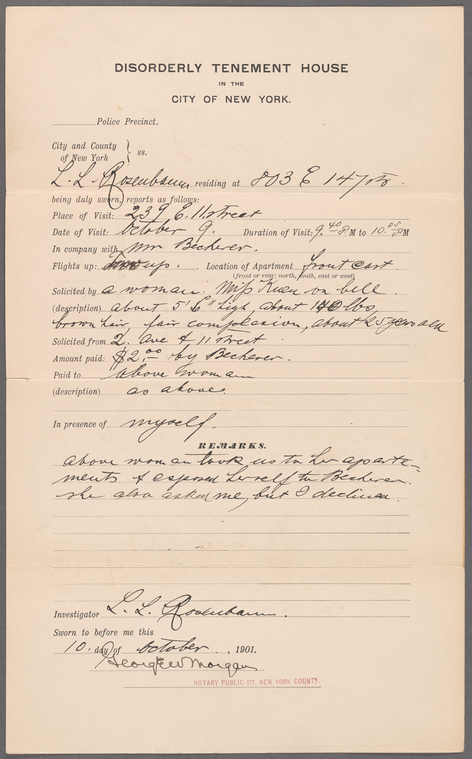 DISORDERLY TENEMENT HOUSE
IN THE
CITY OF NEW YORK.
Police Precinct.
City and County
of New York } ss.
L. L. Rosenbaum residing at 803 E 147 St.
being duly sworn, reports as follows:
Place of Visit: 239 E. 11 street
Date of Visit: October 9. Duration of Visit: 9.40 P.M to 10.05 P.M
In company with Mr Becherer.
Flights up: up. Location of Apartment front east.
(front or rear; north, south, east or west)
Solicited by a woman. Miss on bell
(description) about 5' 6" high, about 140 lbs,
brown hair, fair complexion, about 25 years old
Solicited from 2. Ave & 11 street
Amount paid: $2.00 by Becherer.
Paid to above woman
(description) as above.
In presence of myself.
REMARKS.
above woman took us to her aparte-
ments & exposed herself to Becherer.
she also asked me, but I declined.
Investigator L. L. Rosenbaum.
Sworn to before me this
10. day of October, 1901.
George W Morgan
NOTARY PUBLIC 177, NEW YORK COUNTY.